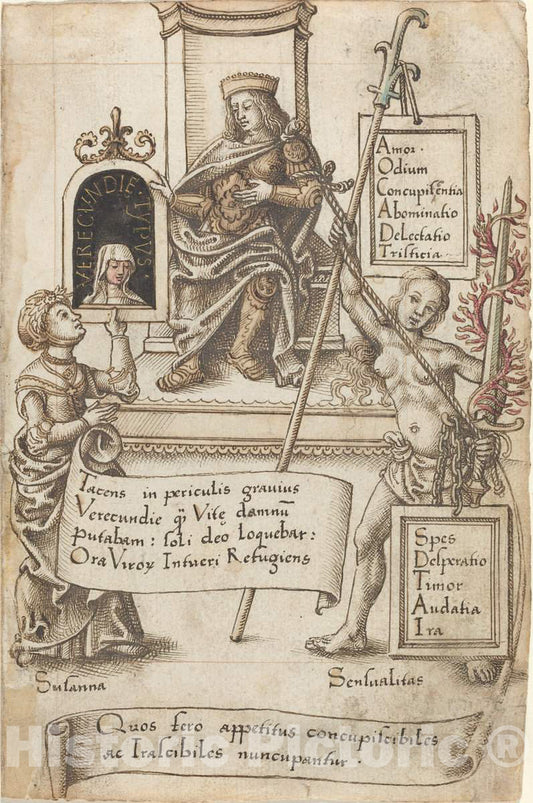 VERECVNDIE TYPVS
Amor.
Odium
Concupiſcentia
Abominatio
Delectatio
Triſticia.
Tacens in periculis grauius
Verecundie q̃ȝ Vitę damnũ
Putabam: ſoli deo loquebar:
Ora Viroꝝ Intueri Refugiens
Spes
Deſperatio
Timor
Audatia
Ira
Suſanna
Senſualitas
Quos fero appetitus concupiſcibiles
ac Iraſcibiles nuncupantur.
Historic Pictoric ®